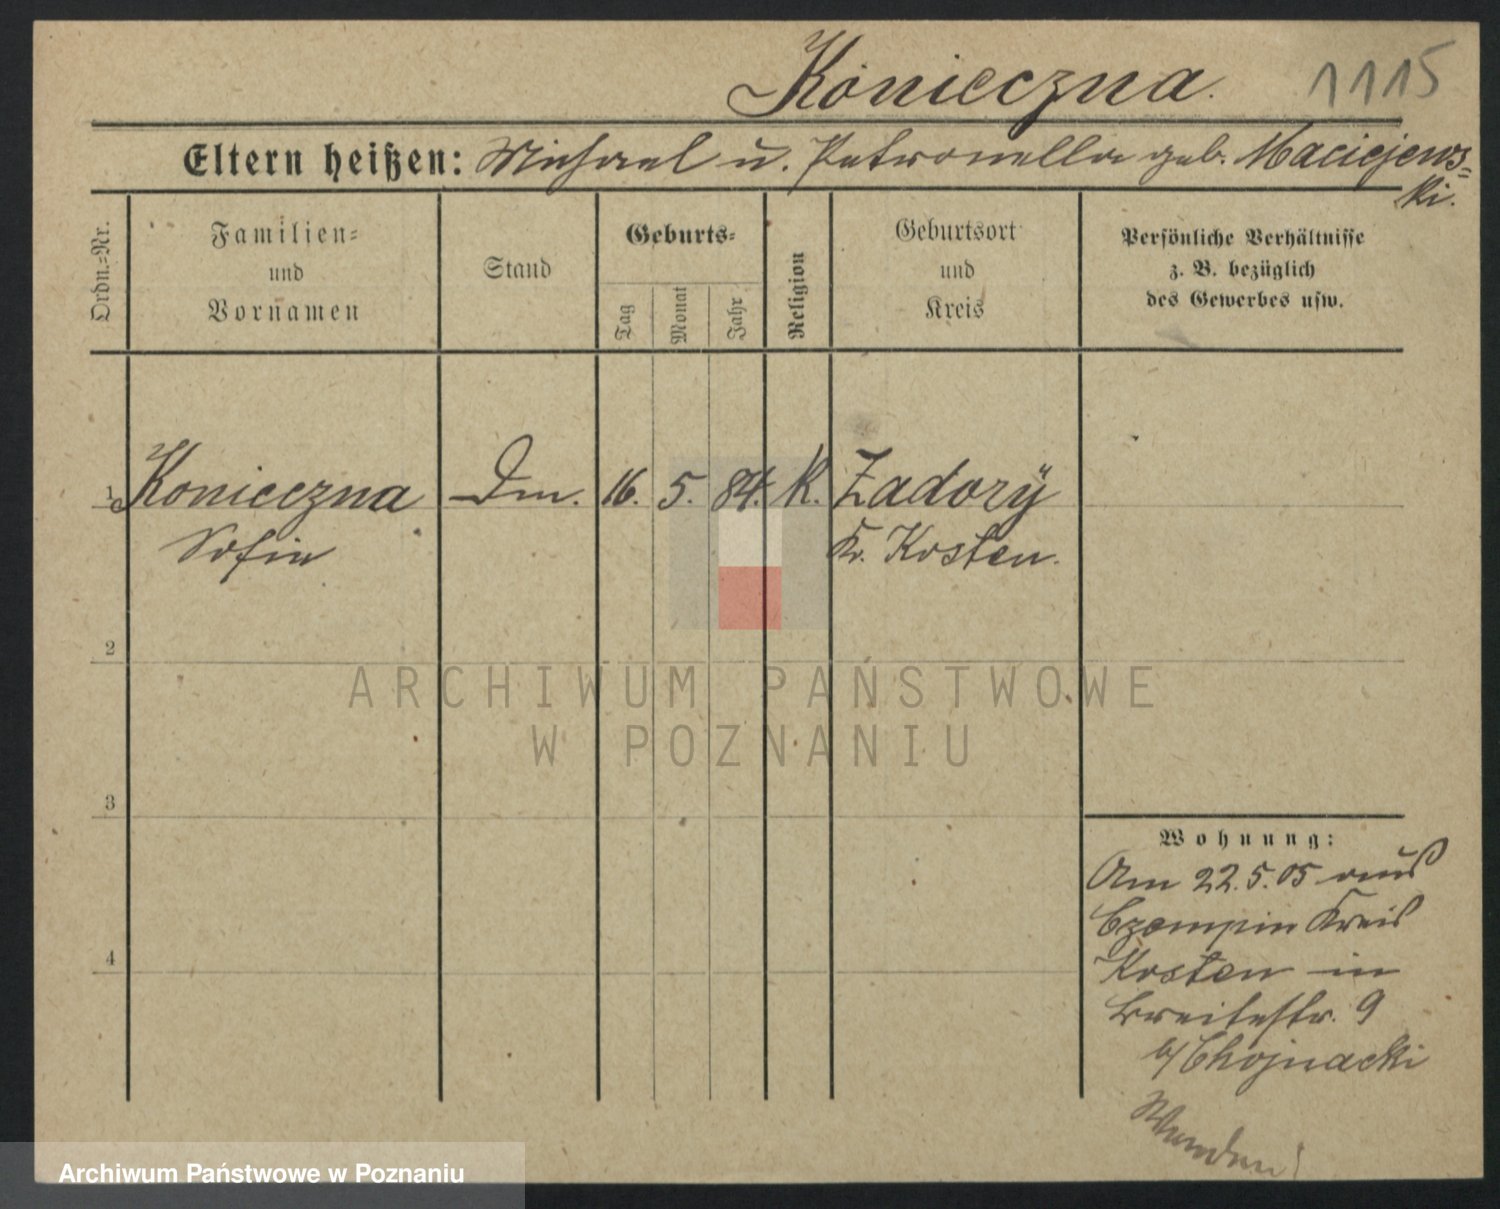 Konieczna.
1115
Eltern heißen: Michael u. Petronella geb. Maciejews=
ki.
Ordn.=Nr.
Familien=
und
Vornamen
Stand
Geburts=
Tag
Monat
Jahr
Religion
Geburtsort
und
Kreis
Persönliche Verhältnisse
z. B. bezüglich
des Gewerbes usw.
1 Konieczna Dm. 16. 5. 84. K. Zadorÿ
Sofia Kr. Kosten.
2
3
4
Wohnung:
Am 22.5.05 aus
Czempin Kreis
Kosten in
Breitestr. 9
b/ Chojnacki
ARCHIWUM PAŃSTWOWE
W POZNANIU
Archiwum Państwowe w Poznaniu